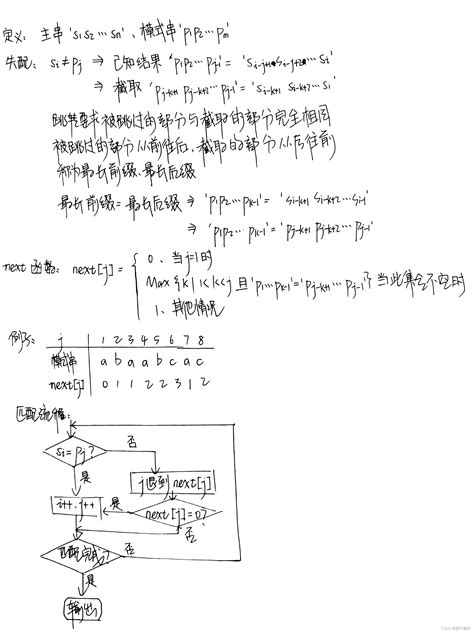 定义: 主串 's₁s₂…sn'、模式串 'p₁p₂…pm'
失配: si≠pj ⇒ 已知结果 'p₁p₂…pj-1' = 'si-j+1si-j+2…si-1'
⇒ 截取 'pj-k+1 pj-k+2…pj-1' = 'si-k+1 si-k+2…si-1'
跳转要求被跳过的部分与截取的部分完全相同
被跳过的部分从前往后、截取的部分从后往前
称为最长前缀、最长后缀
最长前缀=最长后缀 ⇒ 'p₁p₂…pk-1' = 'si-k+1 si-k+2…si-1'
⇒ 'p₁p₂…pk-1' = 'pj-k+1 pj-k+2…pj-1'
next函数: next[j] = { 0、当j=1时
Max{k|1<k<j 且'p₁…pk-1'='pj-k+1…pj-1'}当此集合不空时
1、其他情况
例子: j 1 2 3 4 5 6 7 8
模式串 a b a a b c a c
next[j] 0 1 1 2 2 3 1 2
匹配流程:
si=pj? 否
是 j退到next[j]
i++, j++ 是 next[j]=0?
否
匹配完成? 否
是
输出i